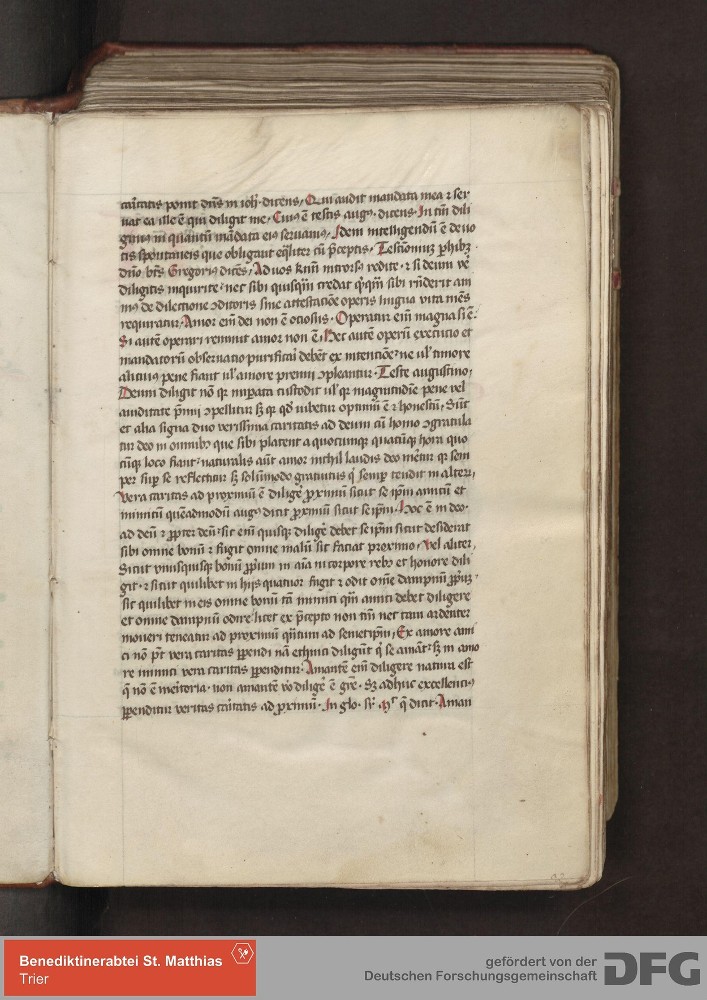 caritatis ponit dns in ioh dicens, Qui audit mandata mea ⁊ ser
uat ea ille ē qui diligit me, Cuius ē testis augꝰ dicens In tm̄ dili
gimꝰ in quantū mādata eiꝰ seruamꝰ, Idem intelligendū ē de uo
tis spontaneis que obligant eqͣliter cū p̄ceptis. Testimoniuꝫ phibꝫ
dicto btus Gregorius dicēs, Ad uos kmi introrsꝰ redite ⁊ si deum ve
diligitis inquirite, nec sibi quisqͣm credat qͥcqͣm sibi rn̄derit ani
mꝰ de dilectione ꝯditoris sine attestatiōe operis lingua vita mēs
requiratur. Amor em̄ dei non ē ociosus. Operatur em̄ magna si ē.
Si autē operari rennuit amor non ē. Hec autē operū executio et
mandatorū obseruatio purificari debēt ex intentiōe, ne ul' timore
alicuiꝰ pene fiant ul' amore premij ꝯpleantur. Teste augustino,
Deum diligit nō qͥ imperata custodit ul' qͥ magnitudīe pene vel
auiditate p̄mij ꝯpellitur sꝫ qͥ qd' iubetur optimū ē ⁊ honestū, Sūt
et alia signa duo verissima caritatis ad deum cū homo ꝯgratula
tur deo in omnibꝫ que sibi placent a quocumqꝫ quacūqꝫ hora quo
cūqꝫ loco fiant, naturalis aūt amor nichil laudis deo meretur qͥ sem
per sup̄ se reflectitur sꝫ solūmodo gratuitus qͥ semper tendit in alterū,
Vera caritas ad proximū ē diligē proximū sicut se ipm̄ amicū et
inimicū quēadmodū augꝰ dicit proximū sicut se ipm̄. Hoc ē in deo
ad deū ⁊ propter deū, sic em̄ quisqꝫ diligē debet se ipm̄ sicut desiderat
sibi omne bonū ⁊ fugit omne malū sic faciat proximo, Vel aliter,
Sicut vnusquisqꝫ bonū proprium in aīa in corpore rebꝫ et honore dili
git ⁊ sicut quilibet in hijs quatuor fugit ⁊ odit oīne dampnū propriūꝫ
sic quilibet in eis omne bonū tā inimici qͣm amici debet diligere
et omne dampnū odire licet ex p̄cepto non tm̄ nec tam ardenter
moueri teneatur ad proximū qͣntum ad semetipm̄, Ex amore ami
ci nō pōt vera caritas perpendi nam ethnici diligūt qͥ se amāt, sꝫ in amo
re inimici vera caritas perpenditur. Amantē em̄ diligere natura est
qͥ nō ē meritoria, non amantē vo diligē ē gre. Sꝫ adhuc excellenciꝰ
perpenditur veritas caritatis ad proximū. In glo. sr. Mt qͥ dicit. Aman
Benediktinerabtei St. Matthias
Trier
gefördert von der
Deutschen Forschungsgemeinschaft
DFG